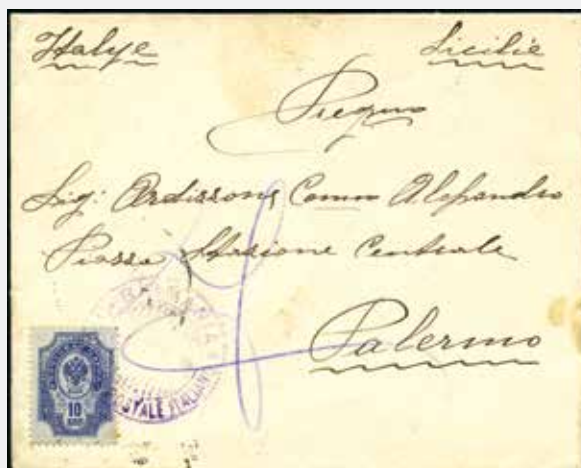 Italye Sicilie
Sig: Ardissone Comm Alesandro
Piazza Stazione Centrale
Palermo
10
POSTALE ITALIAN